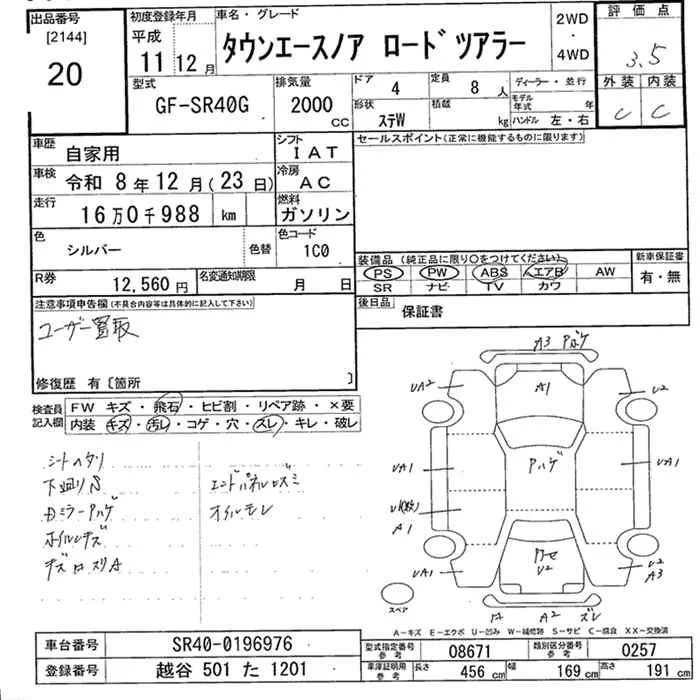 出品番号
[2144]
20
初度登録年月
平成
11 12月
車名・グレード
タウンエースノア ロードツアラー
2WD
・
4WD
評価点
3.5
外装 内装
C C
型式
GF-SR40G
排気量
2000
CC
ドア
4
定員
8 人
ディーラー・並行
形状
ステW
積載
kg
モデル年式
年
ハンドル 左・右
車歴
自家用
シフト
IAT
セールスポイント(正常に機能するものに限ります)
車検
令和 8年 12月(23日)
冷房
AC
走行
16万0千988 km
燃料
ガソリン
色
シルバー
色替
色コード
1C0
装備品(純正品に限り○をつけてください)
PS PW ABS エアB AW
SR ナビ TV カワ
新車保証書
有・無
R券
12,560円
名変通知期限
月 日
後日品
保証書
注意事項申告欄(不具合内容等は具体的に記入して下さい)
ユーザー買取
修復歴 有〔箇所 〕
検査員記入欄
FW キズ・飛石・ヒビ割・リペア跡・×要
内装 キズ・汚レ・コゲ・穴・スレ・キレ・破レ
シートヘタリ
下廻りS
エンドパネルロズミ
ミラーPハゲ
オイルモレ
A3 Pハゲ
UA2
A1
U2
UA1
Pハゲ
UA1
A1
UA1
U2
U2
A3
スペア
A2 ズレ
A-キズ E-エクボ U-凹み W-補修跡 S-サビ C-腐食 XX-交換済
車台番号
SR40-0196976
型式指定番号
参考
08671
類別区分番号
参考
0257
登録番号
越谷 501 た 1201
車庫証明用
参考
長さ
456 cm
幅
169 cm
高さ
191 cm